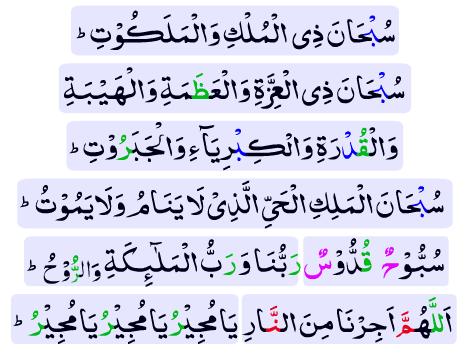 سُبْحَانَ ذِی الْمُلْكِ وَالْمَلَكُوْتِ ؕ
سُبْحَانَ ذِی الْعِزَّةِ وَالْعَظَمَةِ وَالْهَيْبَةِ
وَالْقُدْرَةِ وَالْكِبْرِيَآءِ وَالْجَبَرُوْتِ ؕ
سُبْحَانَ الْمَلِكِ الْحَیِّ الَّذِیْ لَا يَنَامُ وَلَا يَمُوْتُ ؕ
سُبُّوْحٌ قُدُّوْسٌ رَبُّنَا وَرَبُّ الْمَلٰٓئِكَةِ وَالرُّوْحُ ؕ
اَللّٰهُمَّ اَجِرْنَا مِنَ النَّارِ يَا مُجِيْرُ يَا مُجِيْرُ يَا مُجِيْرُ ؕ